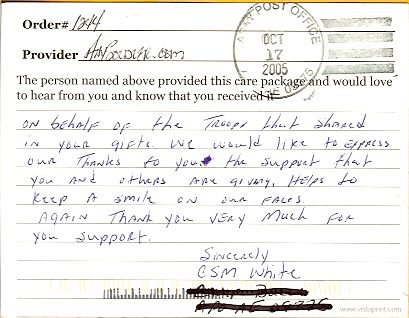 Order# 1244
ARMY POST OFFICE
OCT
17
2005
Provider AnySoldier.com
The person named above provided this care package and would love
to hear from you and know that you received it.
ON behalf OF the TROOPS that shared
in your gifts. We would like to express
our Thanks to you & the support that
you AND others ARE giving, Helps to
Keep A smile on our faces.
AGAIN THANK you VERY Much FOR
you Support.
Sincerely
CSM White
APO AE
www.vistaprint.com